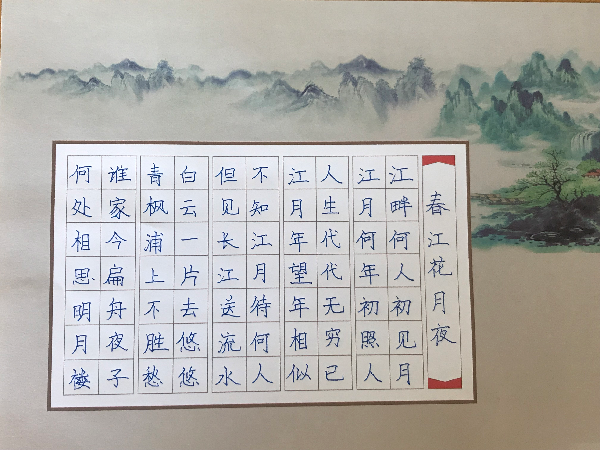 春江花月夜
江畔何人初见月
江月何年初照人
人生代代无穷已
江月年望年相似
不知江月待何人
但见长江送流水
白云一片去悠悠
青枫浦上不胜愁
谁家今扁舟夜子
何处相思明月楼